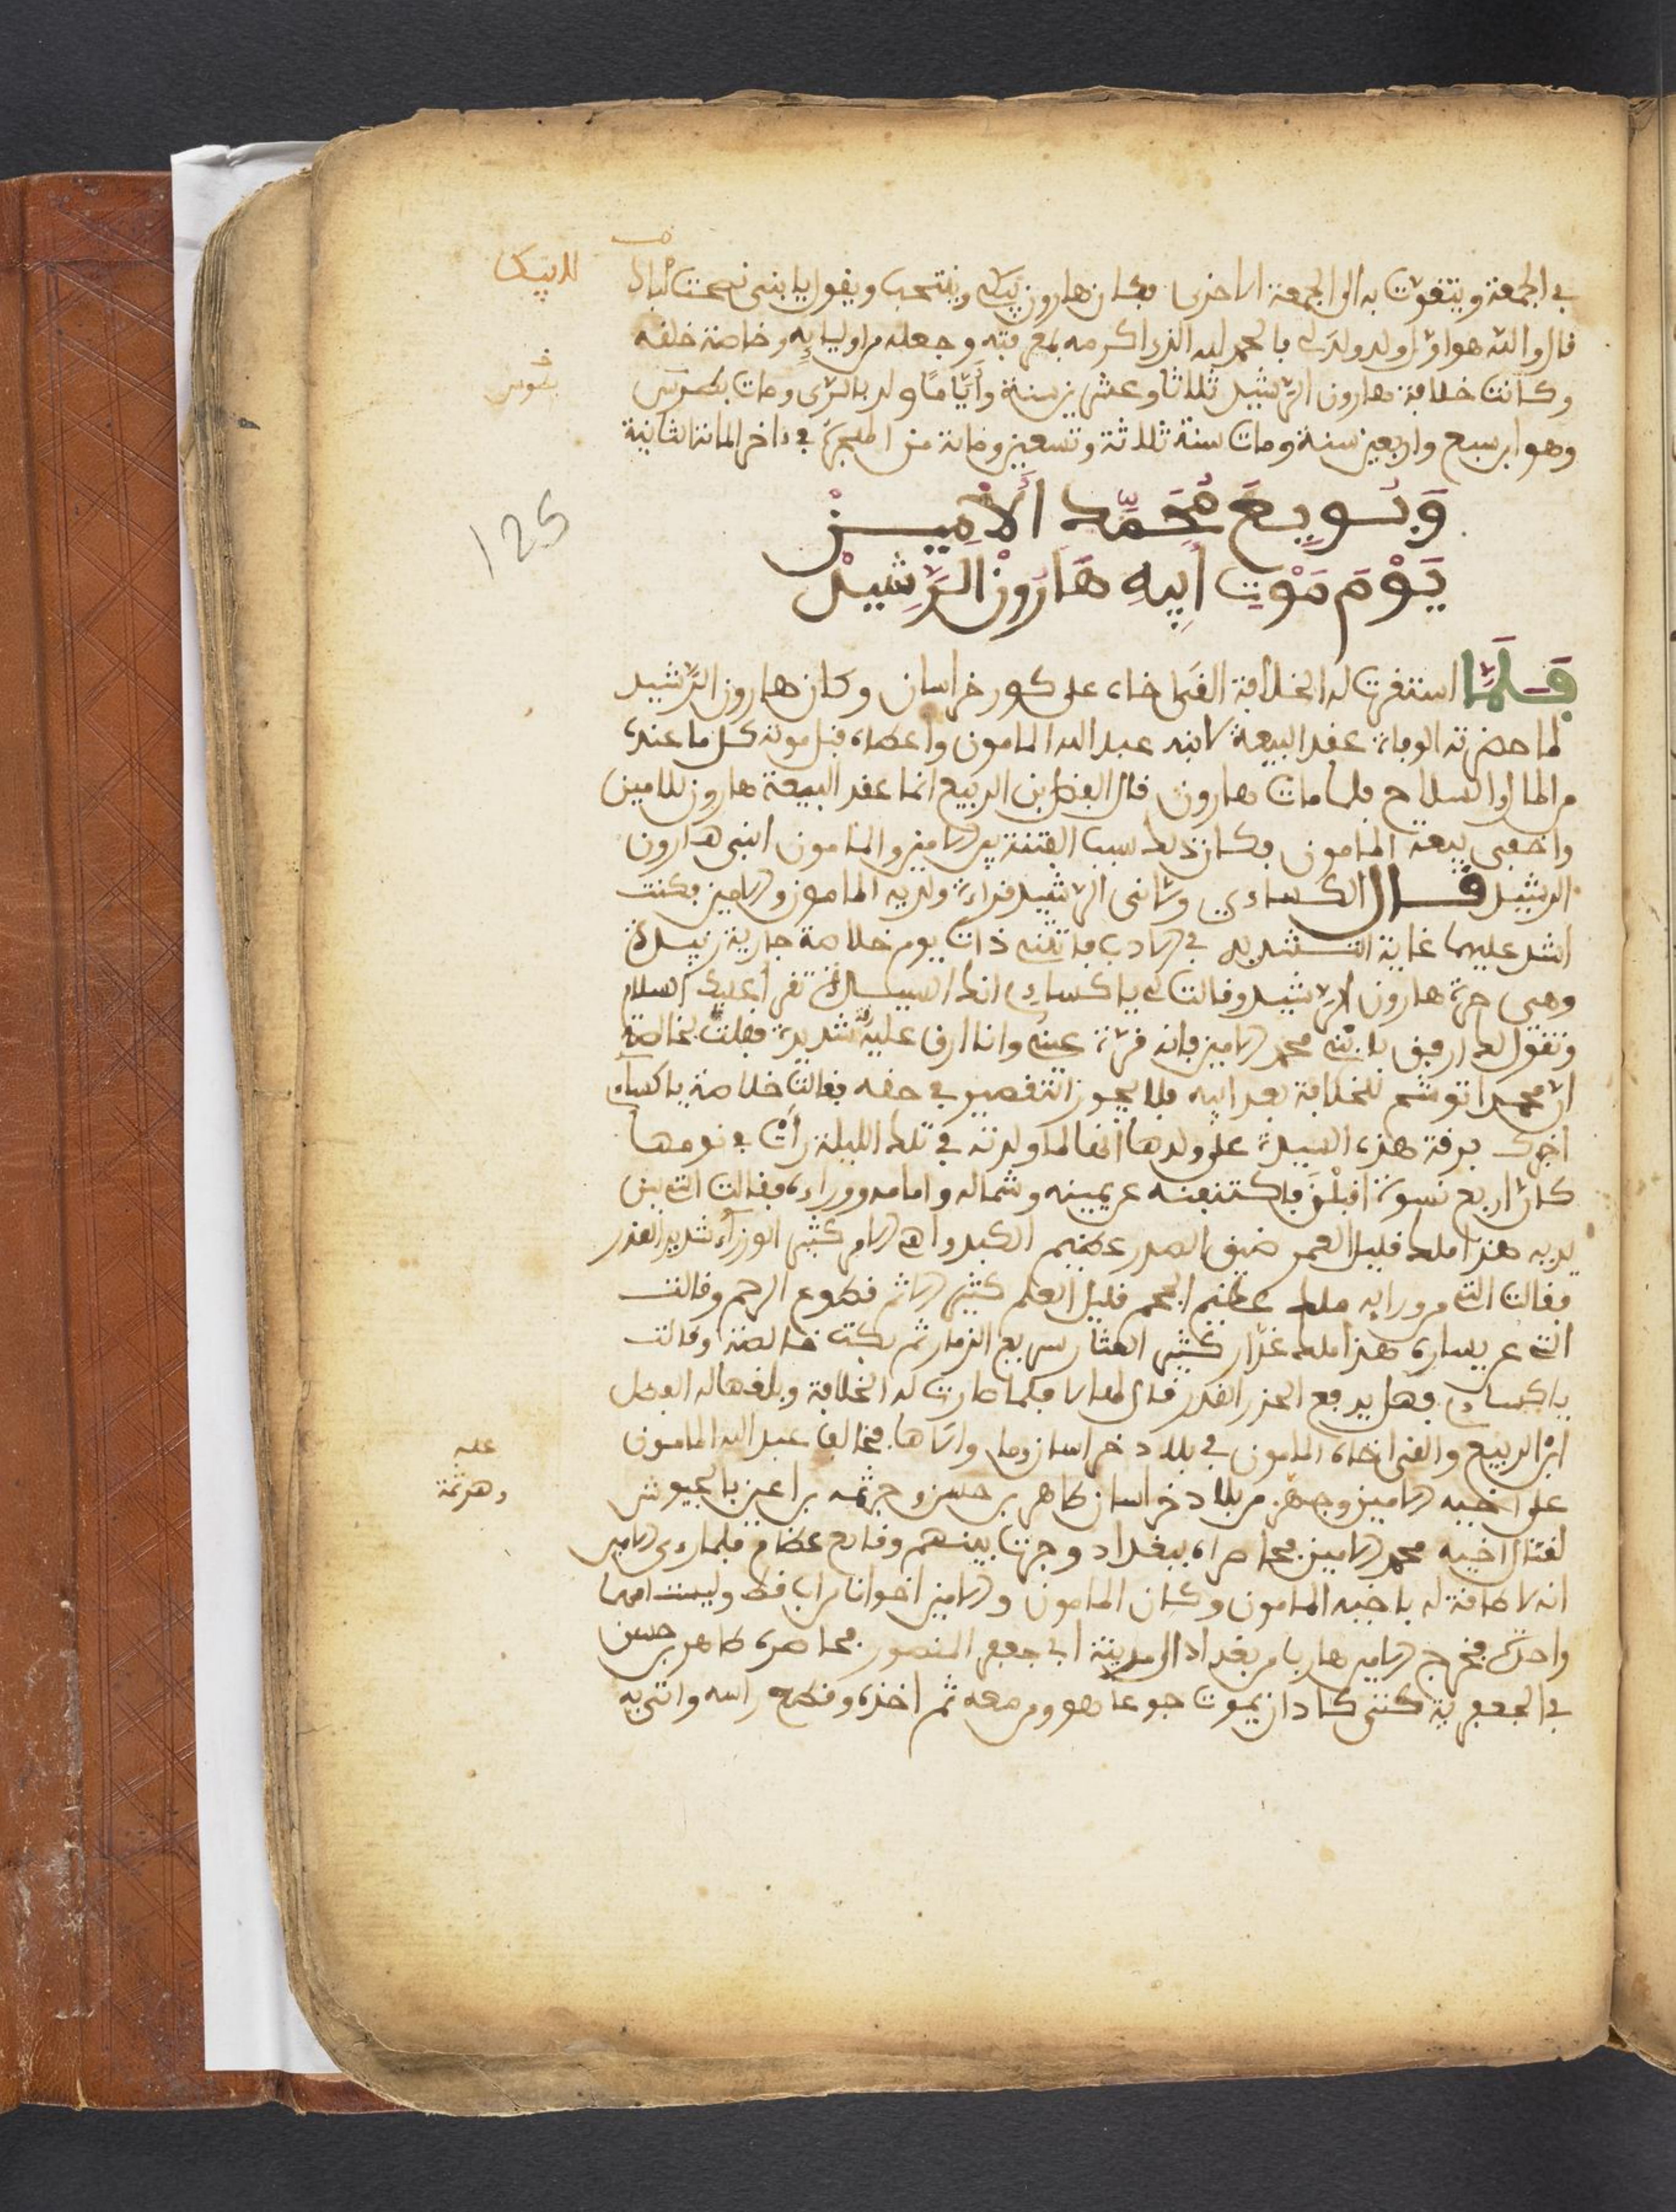 في الجمعة ويتقوت به الى الجمعة الاخرى فكان هارون يبكي وينتحب ويقول يا بني نصحت لابيك
قال والله هو اول ولد ولد لي فالحمد لله الذي اكرمه بمعرفته وجعله من اوليايه وخاصة خلقه
وكانت خلافة هارون الرشيد ثلاثا وعشرين سنة وأياما وولد بالرى ومات بطوس
وهو ابن سبع واربعين سنة ومات سنة ثلاثة وتسعين ومائة من الهجرة في داخر المائة الثانية
وَبُويِعَ مُحَمَّد الأمِيــنْ
يَوْمَ مَوْتِ أبِيهِ هَارُونْ الرَّشِيدْ
فَلَمَّا استقرت له الخلافة القى اخاه على كور خراسان وكان هارون الرشيد
لما حضرته الوفاة عقد البيعة لابنه عبد الله المامون واعطاه قبل موته كل ما عنده
من المال والسلاح فلما مات هارون قال الفضل بن الربيع انما عقد البيعة هارون للامين
واخفى بيعة المامون فكان ذلك سبب الفتنة بين الامين والمامون ابني هارون
الرشيد قــال الكساءي ولاني الرشيد قراءة ولديه المامون والامين فكنت
اشد عليهما غاية التشديد في الادب فاتتني ذات يوم خلاصة جارية زبيدة
وهي حرة هارون الرشيد وقالت لي يا كساءي ان السيدة تقرأ عليك السلام
وتقول لك ارفق بابني محمد الامين فانه قرة عيني وانا ارق عليه رقة شديدة فقلت لخالصة
ان محمدا توشح للخلافة بعد ابيه فلا يجوز التقصير في حقه فقالت خلاصة يا كساءي
اخبرك برقة هذه السيدة على ولدها انها لما ولدته في تلك الليلة رأت في نومها
كان اربع نسوة اقبلن فاكتنفنه عن يمينه وشماله وامامه ووراءه فقالت التي بين
يديه هذا ملك قليل العمر ضيق الصدر عظيم الكبر واهي الامر كثير الوزراء شديد الغدر
فقالت التي من ورايه ملك عظيم الجحم قليل العلم كثير الاثم قطوع الرحم وقالت
التي عن يساره هذا ملك غدار كثير العثار سريع الزمار ثم بكت خالصة وقالت
يا كساءي وهل يدفع الحذر القدر قال لها لا فلما صارت له الخلافة وبلغها له الفضل
ابن الربيع والقى اخاه المامون في بلاد خراسان وما والاها فخالف عبد الله المامون
على اخيه الامين وجهز من بلاد خراسان طاهر بن حسن وجرثمه بن اعين بالجيوش
لقتال اخيه محمد الامين فحاصراه ببغداد وجرت بينهم وقايع عظام فلما رءى الامين
انه لا طاقة له باخيه المامون وكان المامون والامين اخوانا من اب فقط وليست امهما
واحدة فخرج الامين هاربا من بغداد الى مدينة ابي جعفر المنصور فحاصره طاهر بن حسن
في الجعفرية حتى كاد ان يموت جوعا هو ومن معه ثم اخذه وقطع راسه واتى به
لابيك
بطوس
125
عليه
وهرثمة